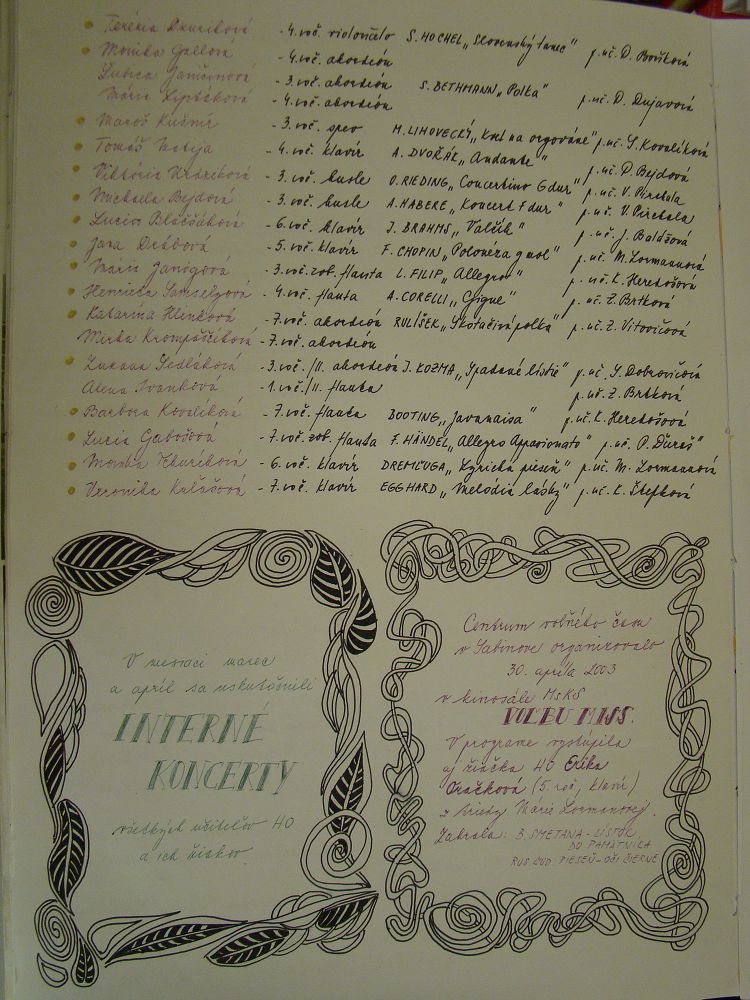 Terézia - 4. roč. violončelo S. HOCHEL „Slovenský tanec" p. uč. D. Boušková
Monika Gallová - 4. roč. akordeón
Ľubica Jančinová - 3. roč. akordeón S. BETHMANN „Polka" p. uč. D. Dujavová
Mária Liptáková - 4. roč. akordeón
Maroš Kuzmír - 3. roč. spev M. LIHOVECKÝ „ na orgováne" p. uč. S. Kovalíková
Tomáš - 4. roč. klavír A. DVOŘÁK „Andante" p. uč. D. Bejdová
Viktória - 3. roč. husle O. RIEDING „Concertino G dur" p. uč. V. Pirchala
Michaela Bejdová - 3. roč. husle A. HABERE „Koncert F dur" p. uč. V. Pirchala
Lucia - 6. roč. klavír J. BRAHMS „Valčík" p. uč. J. Balážová
Jana Drábová - 5. roč. klavír F. CHOPIN „Polonéza g mol" p. uč. M. Lormannová
Mária - 3. roč. zob. flauta L. FILIP „Allegro" p. uč. K. Heredošová
Henrieta - 4. roč. flauta A. CORELLI „Gigue" p. uč. Z. Brtková
Katarína Hlinková - 7. roč. akordeón RULÍŠEK „Skotačivá polka" p. uč. Z. Vitovičová
Mirka - 7. roč. akordeón
Zuzana Sedláková - 3. roč./II. akordeón J. KOZMA „Spadané lístie" p. uč. S. Dobrovičová
Alena Ivanková - 1. roč./II. flauta p. uč. Z. Brtková
Barbora Kovalíková - 7. roč. flauta BOOTING „Javanaisa" p. uč. K. Heredošová
Lucia Gabošová - 7. roč. zob. flauta F. HÄNDEL „Allegro Appasionato" p. uč. P. Ďuraš"
Monika - 6. roč. klavír DREMĽUGA „Lyrická pieseň" p. uč. M. Lormannová
Veronika Kalašová - 7. roč. klavír EGGHARD „Melódia lásky" p. uč. K. Štefková
V mesiaci marec
a apríl sa uskutočnili
INTERNÉ
KONCERTY
všetkých učiteľov HO
a ich žiakov.
Centrum voľného času
v Sabinove organizovalo
30. apríla 2003
v kinosále MsKS
VOĽBU MISS.
V programe vystúpila
aj žiačka HO Erika
Oračková (5. roč, klavír)
z triedy Márie Lormannovej.
Zahrala: B. SMETANA - LÍSTOK
DO PAMÄTNÍKA
RUS. ĽUD. PIESEŇ - OČI ČIERNE